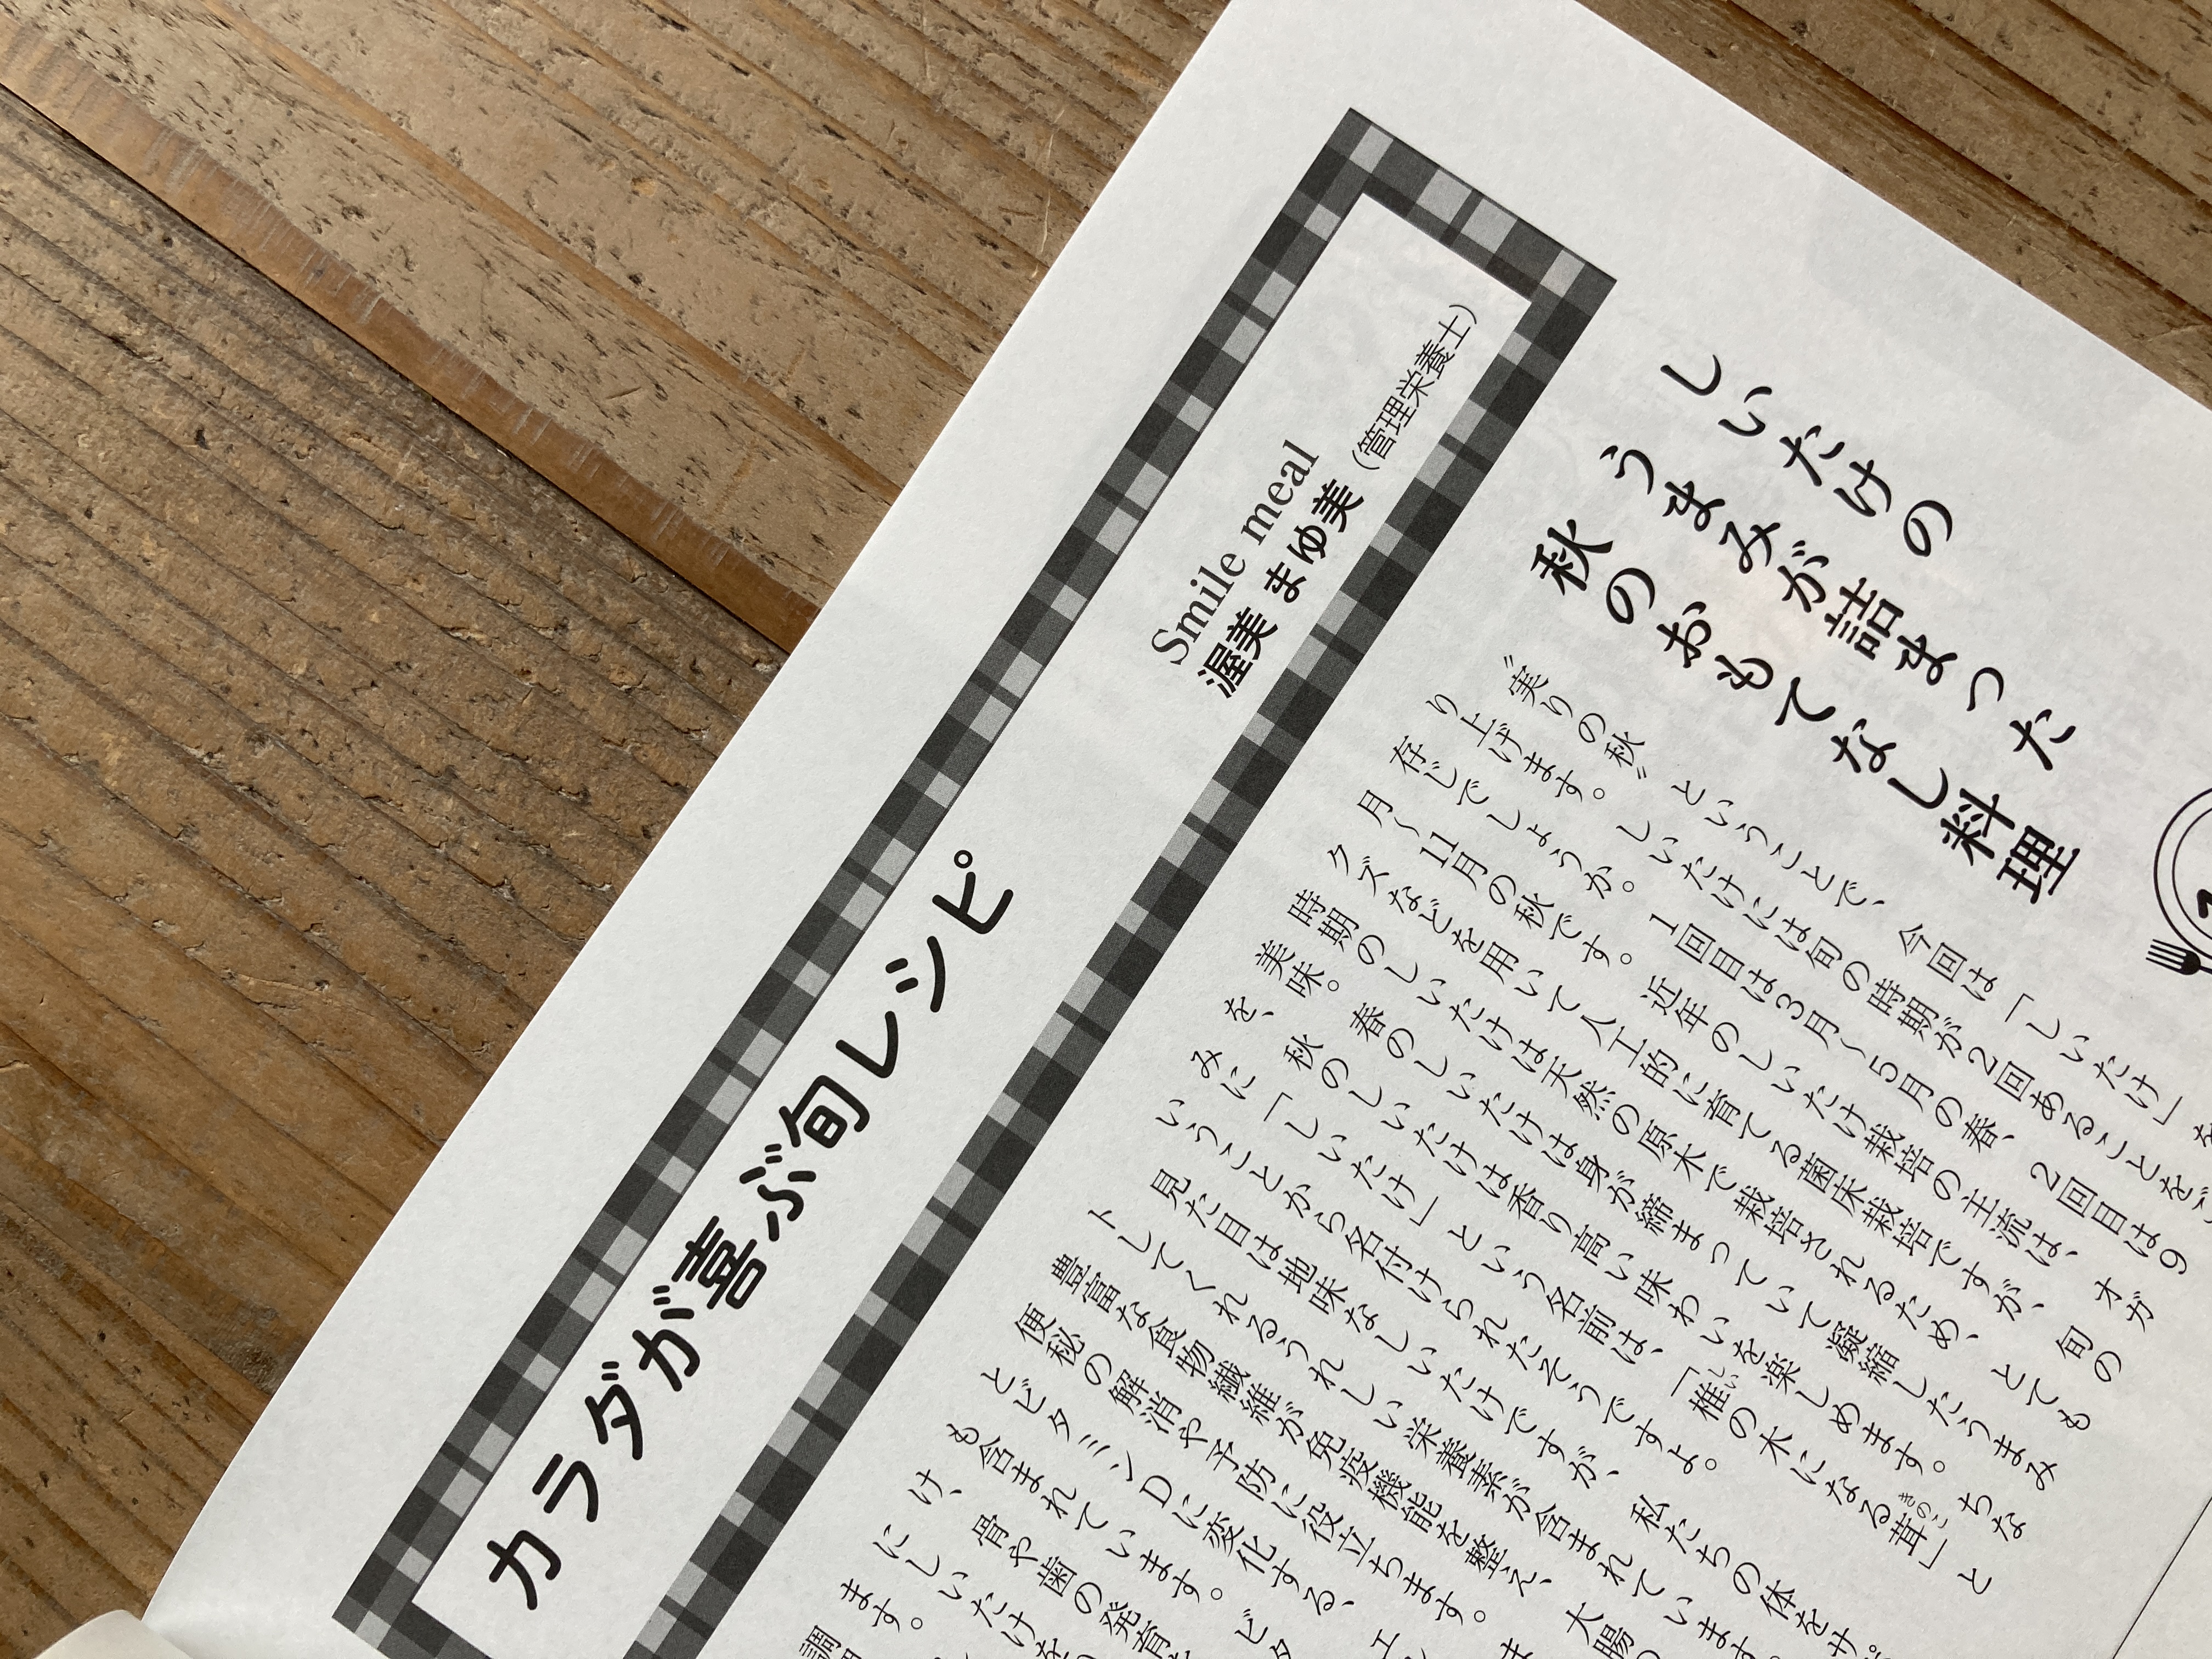 カラダが喜ぶ旬レシピ
Smile meal
渥美 まゆ美(管理栄養士)
しいたけの
うまみが詰まった
秋のおもてなし料理
〝実りの秋〟ということで、今回は「しいたけ」を
り上げます。しいたけには旬の時期が2回あることをご
存じでしょうか。1回目は3月〜5月の春、2回目は9
月〜11月の秋です。近年のしいたけ栽培の主流は、オガ
クズなどを用いて人工的に育てる菌床栽培ですが、旬の
時期のしいたけは天然の原木で栽培されるため、とても
美味。春のしいたけは身が締まっていて凝縮したうまみ
を、秋のしいたけは香り高い味わいを楽しめます。ちな
みに「しいたけ」という名前は、「椎の木になる茸」と
しい
きのこ
いうことから名付けられたそうですよ。
見た目は地味なしいたけですが、私たちの体をサ
トしてくれるうれしい栄養素が含まれています。
豊富な食物繊維が免疫機能を整え、大腸の
便秘の解消や予防に役立ちます。ま
とビタミンDに変化する、エ
も含まれています。ビタ
け、骨や歯の発育
にしいたけを
ます。
調